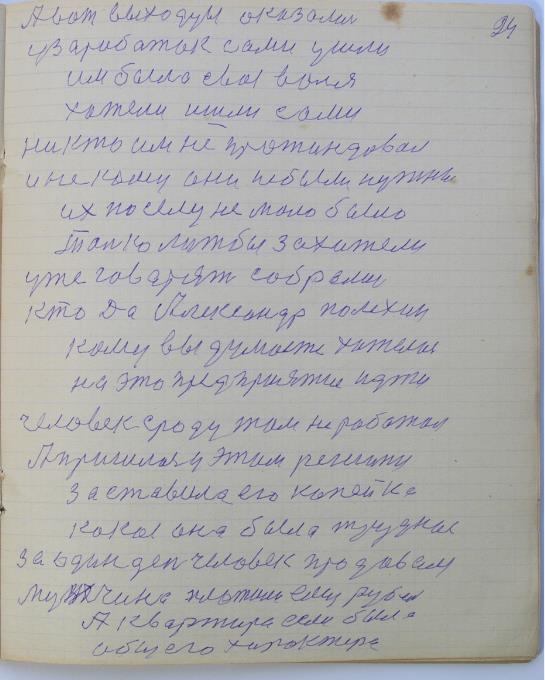 24
А вот выходцы оказали
и заработок сами ушли
им было своя воля
хотели ишли сами
никто им не
и не кому они небыли нужны
их поселу не мало было
Толко лижбы захители
уже говарят собрали
кто да Александр полехин
кому вы думаете хателос
на это предприятие идти
человек сроду там не работал
А пришлось у этом регипи
заставила его копейка
какая она была трудная
За один ден человек продовал
мужчина платили ему рубел
А квартира если была
общего характера